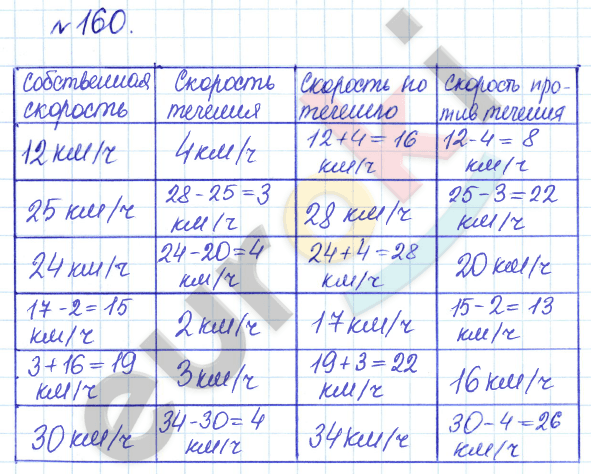 №160.
Собственная скорость | Скорость течения | Скорость по течению | Скорость против течения
12 км/ч | 4 км/ч | 12+4=16 км/ч | 12-4=8 км/ч
25 км/ч | 28-25=3 км/ч | 28 км/ч | 25-3=22 км/ч
24 км/ч | 24-20=4 км/ч | 24+4=28 км/ч | 20 км/ч
17-2=15 км/ч | 2 км/ч | 17 км/ч | 15-2=13 км/ч
3+16=19 км/ч | 3 км/ч | 19+3=22 км/ч | 16 км/ч
30 км/ч | 34-30=4 км/ч | 34 км/ч | 30-4=26 км/ч
euroki